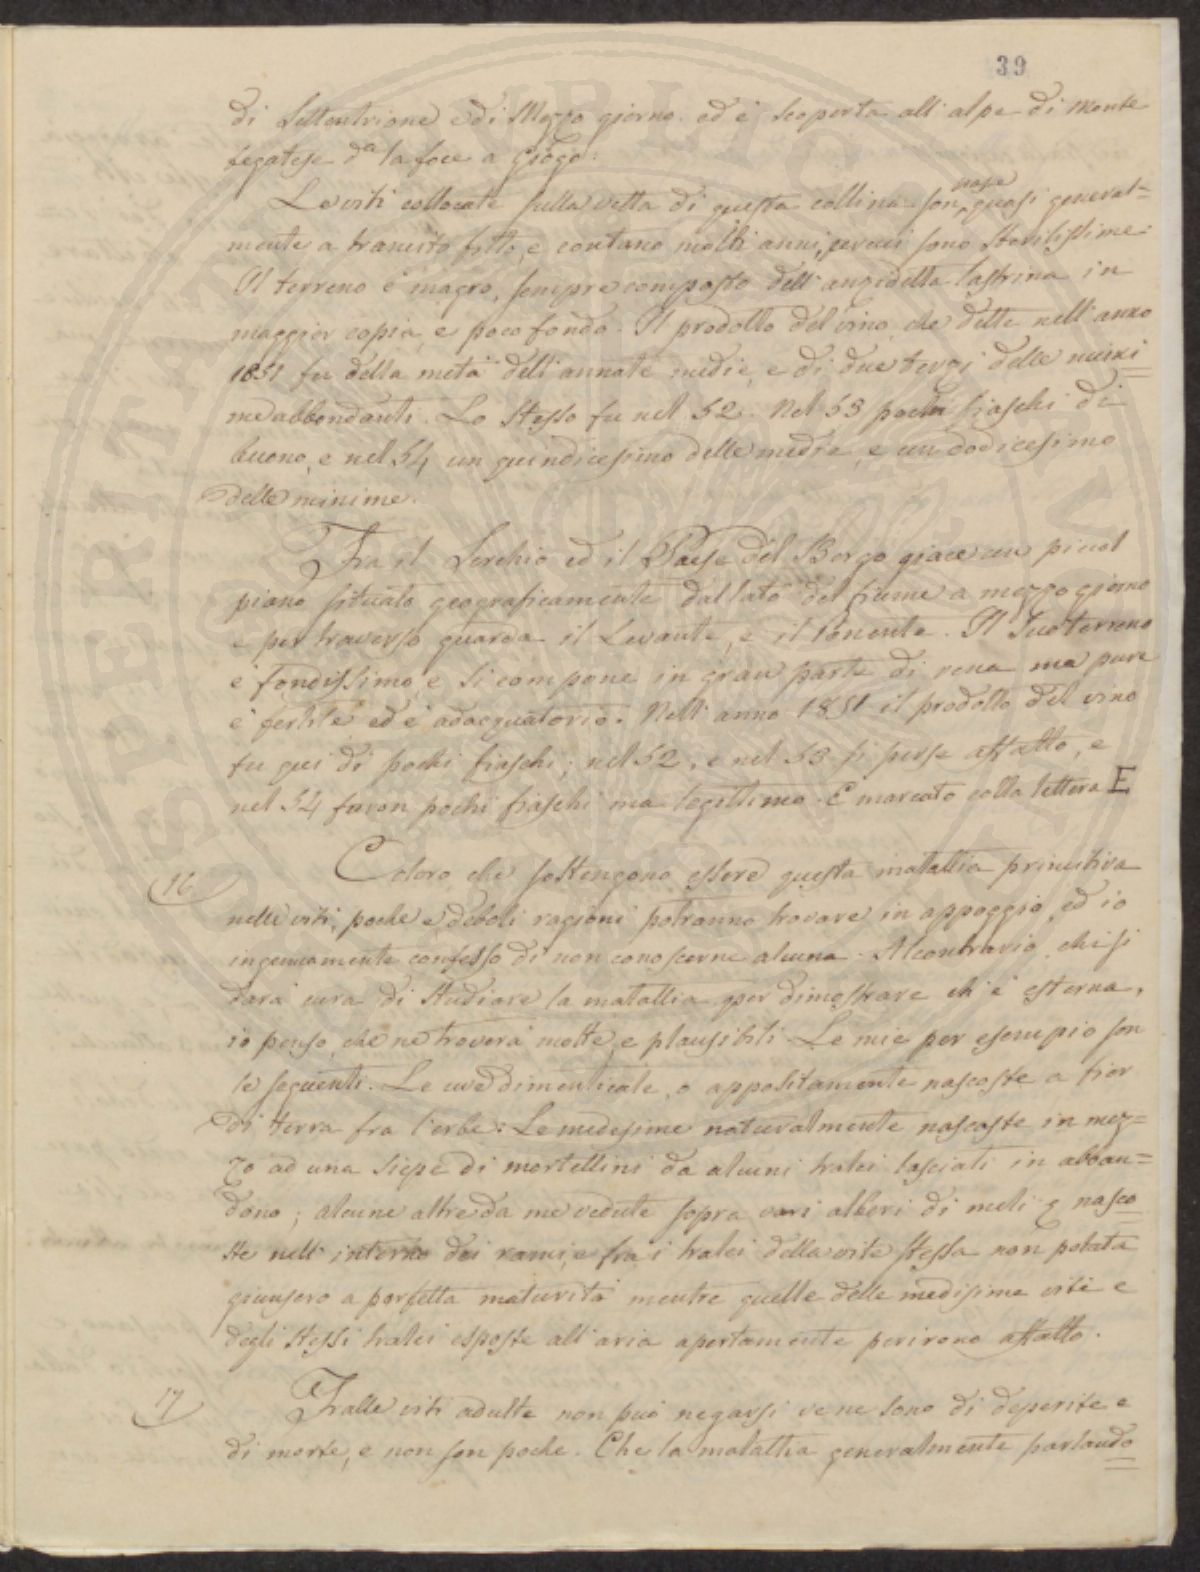 39
di Settentrione e di Mezzo giorno. ed è scoperta all'alpe di Monte
fegatese da la foce a Giogo:
Le viti collocate sulla vetta di questa collina son quasi general=
mente a tramito fitto, e contano molti anni, percui sono sterilissime.
Il terreno è magro, sempre composto dell'anzidetta lastrina in
maggior copia, e poco fondo. Il prodotto del vino che dette nell'anno
1851 fu della metà dell'annate medie, e di due terzi delle mini
me abbondanti. Lo stesso fu nel 52. Nel 53 pochi fiaschi di
buono, e nel 54 un quindicesimo delle medie, e un dodicesimo
delle minime.
Fra il Serchio ed il Paese del Borgo giace un piccol
piano situato geograficamente dal lato del fiume a mezzogiorno
e per traverso guarda il Levante, e il Ponente. Il suo terreno
è fondissimo, e si compone in gran parte di rena ma pure
è fertile ed è adacquatorio. Nell'anno 1851 il prodotto del vino
fu qui di pochi fiaschi; nel 52, e nel 53 si perse affatto, e
nel 54 furon pochi fiaschi ma legittimo. È marcato colla lettera E
16 Coloro che sostengono essere questa malattia primitiva
nelle viti, poche e deboli ragioni potranno trovare in appoggio, ed io
ingenuamente confesso di non conoscerne alcuna. Al contrario, chi si
darà cura di studiare la malattia per dimostrare ch'è esterna,
io penso, che ne troverà molte, e plausibili. Le mie per esempio son
le seguenti. Le uve dimenticate, o appositamente nascoste a fior
di terra fra l'erbe: Le medesime naturalmente nascoste in mez=
zo ad una siepe di mortellini da alcuni tralci lasciati in abban=
dono; alcune altre da me vedute sopra vari alberi di meli e nasco
ste nell'interno dei rami, e fra i tralci della vite stessa non potata
giunsero a perfetta maturità mentre quelle delle medesime viti e
degli stessi tralci esposte all'aria apertamente perirono affatto.
17 Fralle viti adulte non può negarsi ve ne sono di deperite e
di morte, e non son poche. Che la malattia generalmente parlando